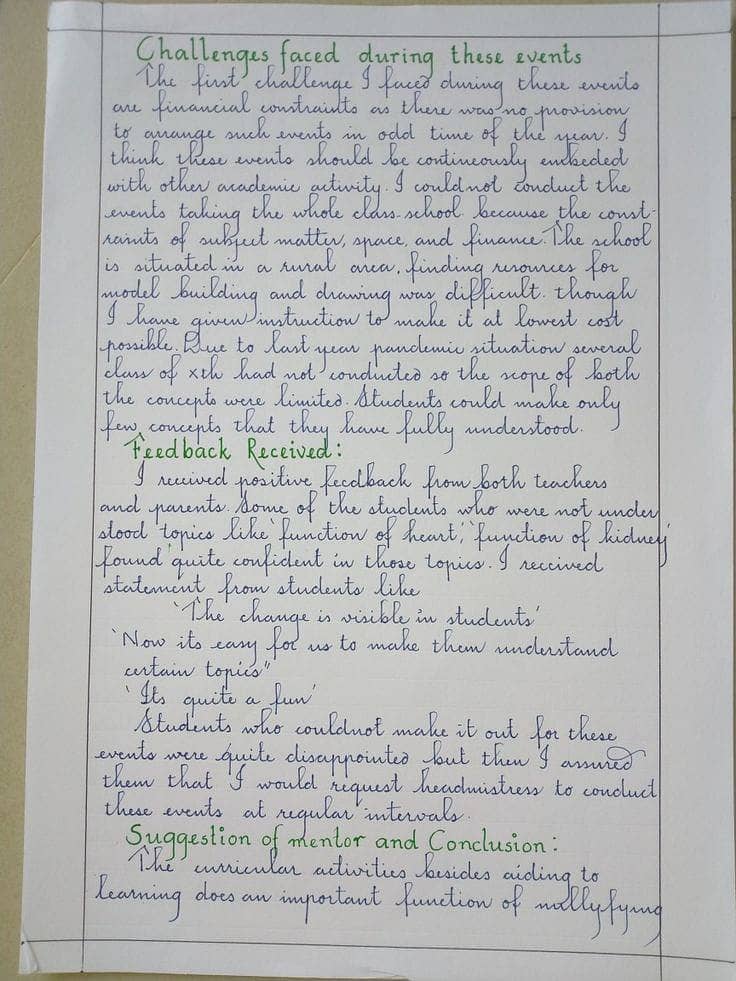 Challenges faced during these events
The first challenge I faced during these events
are financial constraints as there was no provision
to arrange such events in odd time of the year. I
think these events should be contineously embeded
with other academic activity. I couldnot conduct the
events taking the whole class-school because the const-
raints of subject matter, space, and finance. The school
is situated in a rural area, finding resources for
model building and drawing was difficult. though
I have given instruction to make it at lowest cost
possible. Due to last year pandemic situation several
class of xth had not conducted so the scope of both
the concepts were limited. Students could make only
few concepts that they have fully understood.
Feedback Received:
I received positive feedback from both teachers
and parents. Some of the students who were not under
stood topics like 'function of heart', 'function of kidney'
found quite confident in those topics. I received
statement from students like
'The change is visible in students'
'Now its easy for us to make them understand
certain topics"
'Its quite a fun'
Students who couldnot make it out for these
events were quite disappointed but then I assured
them that I would request headmistress to conduct
these events at regular intervals.
Suggestion of mentor and Conclusion:
The curricular activities besides aiding to
learning does an important function of nullyfying